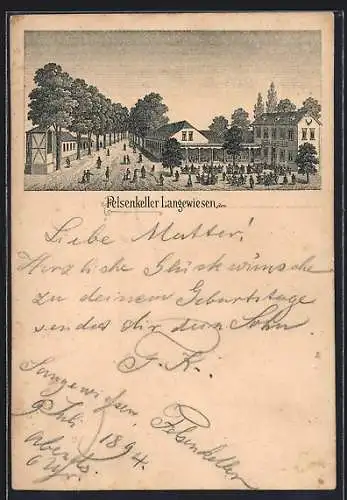 Felsenkeller Langewiesen, den
Liebe Mutter!
Herzliche Glückwünsche
zu deinem Geburtstage
sendet dir dein Sohn
F. K.
Langewiesen
9 Juli 1894.
Abends
6 Uhr.
Felsenkeller